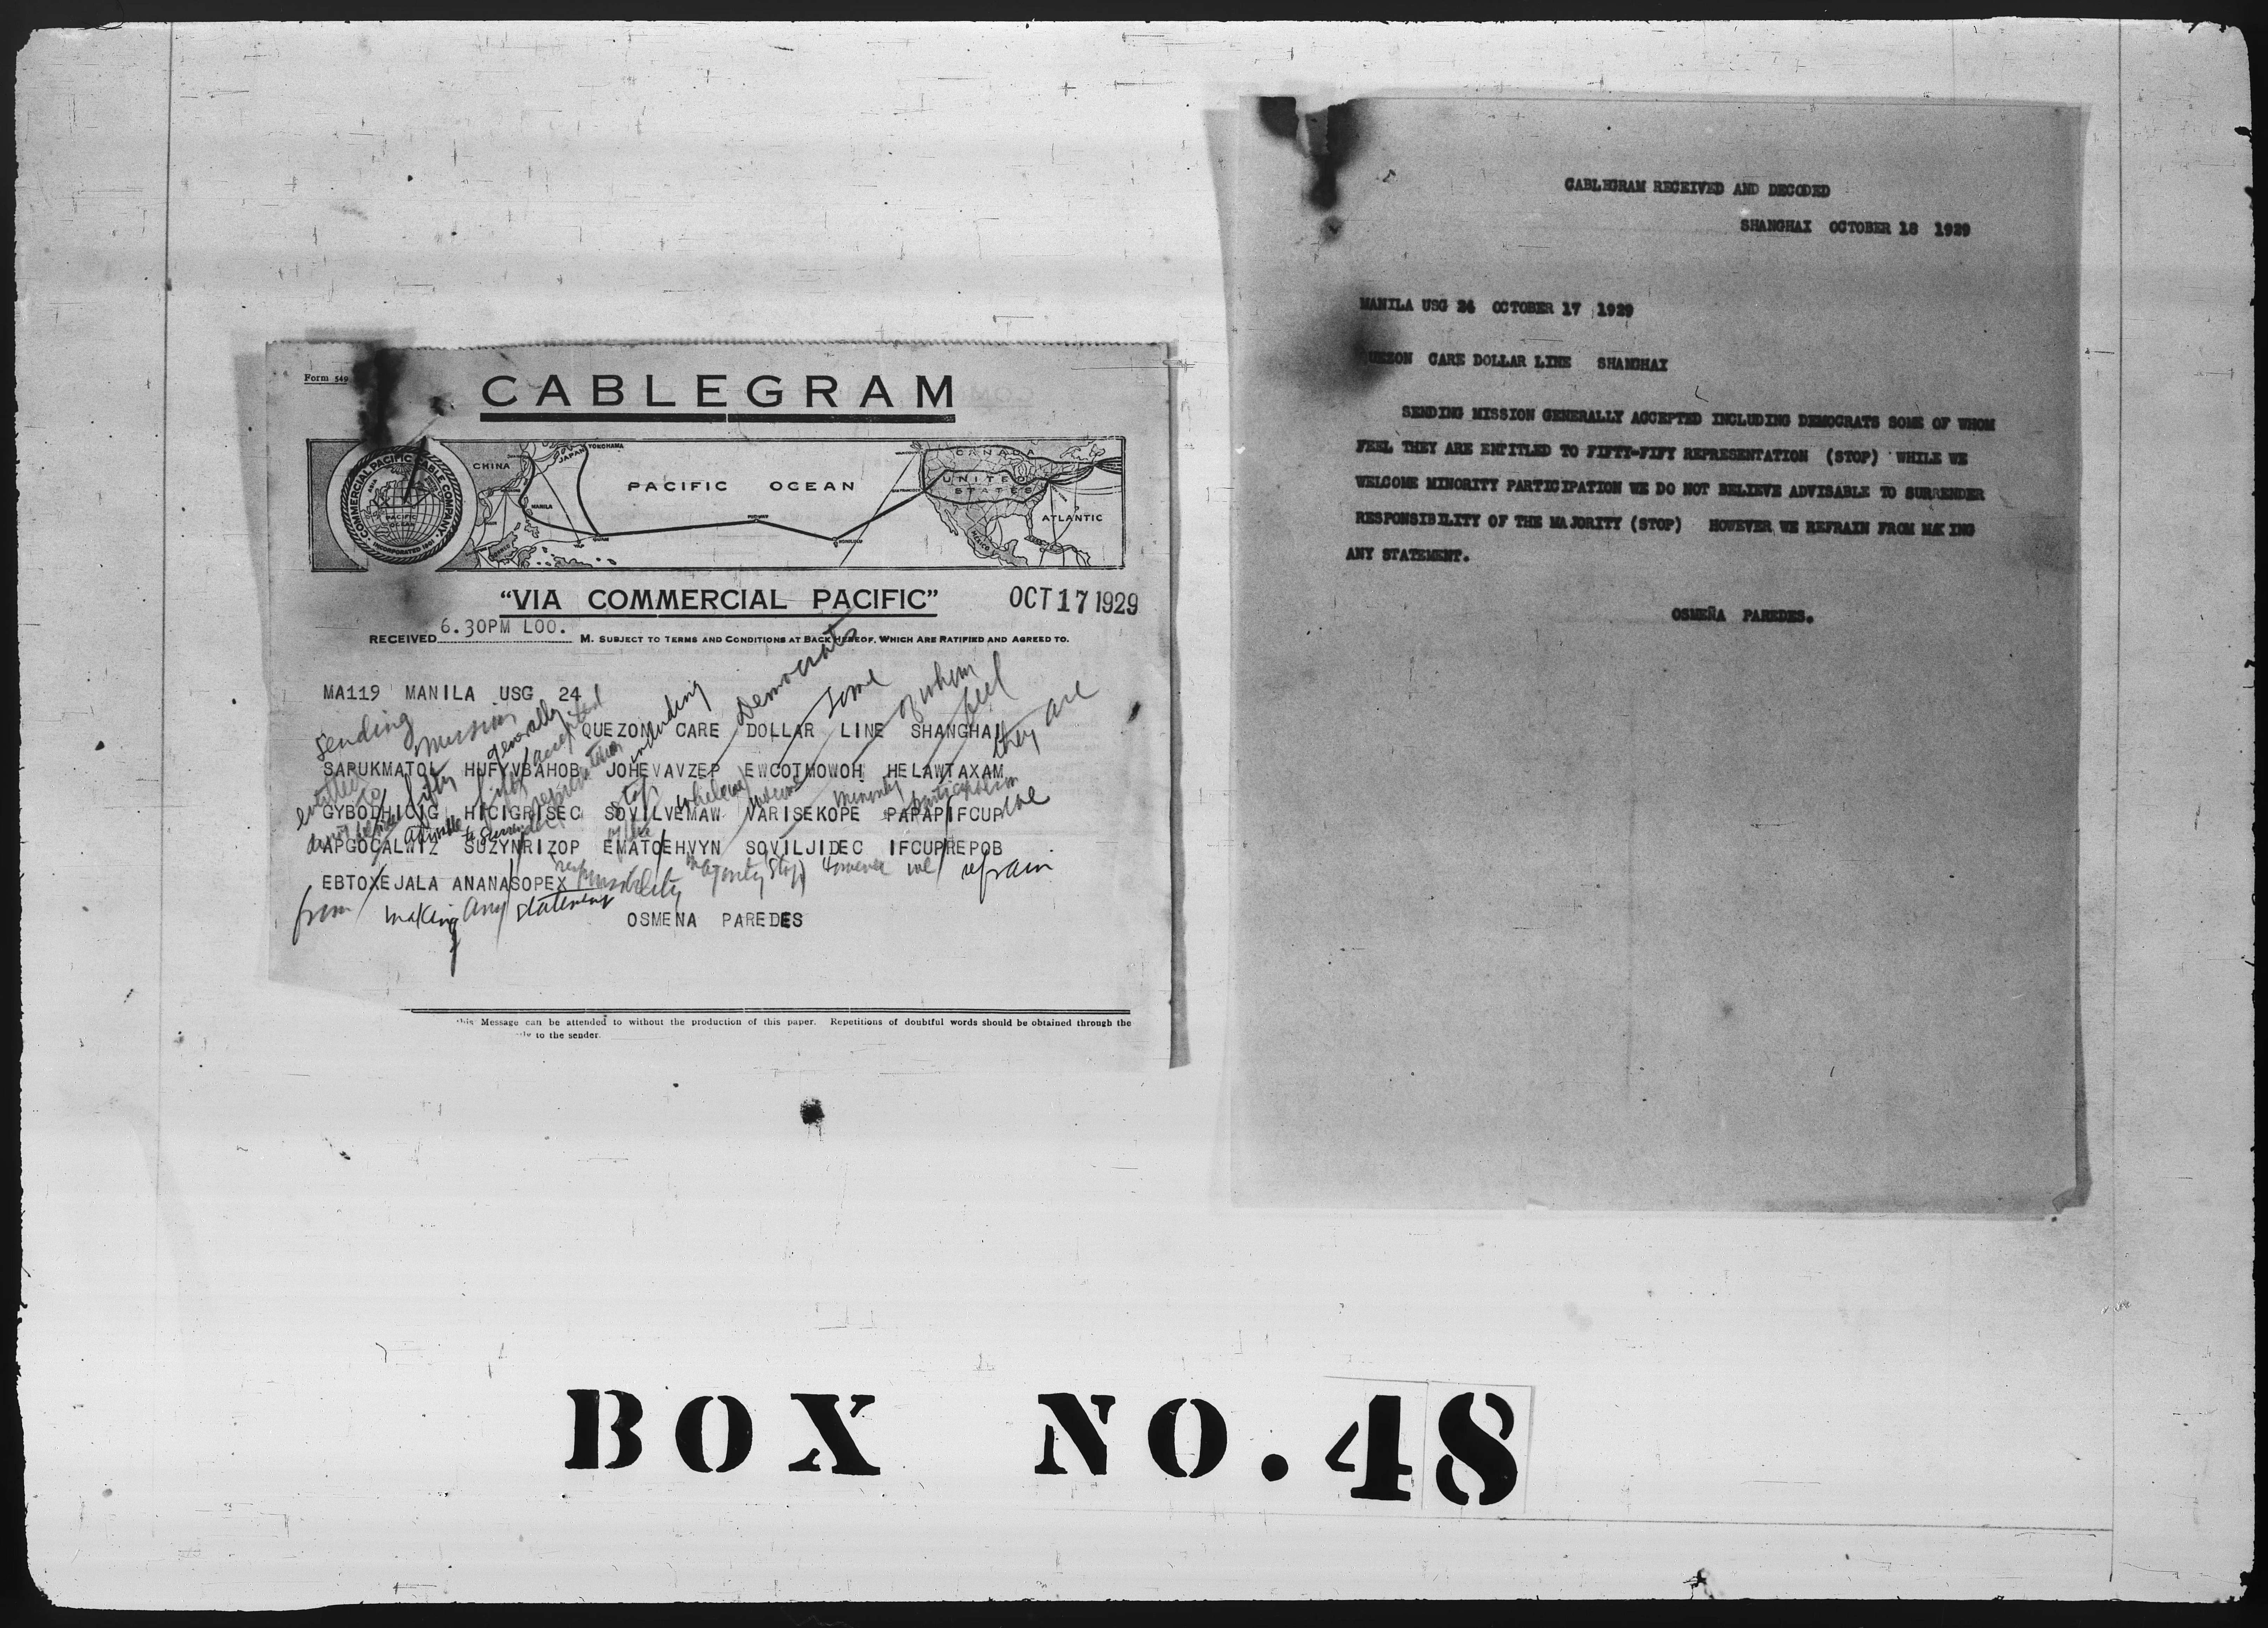 Form 549
CABLEGRAM
COMMERCIAL PACIFIC CABLE COMPANY
INCORPORATED
PACIFIC OCEAN
CHINA
JAPAN
YOKOHAMA
MANILA
PACIFIC OCEAN
CANADA
UNITED STATES
MEXICO
ATLANTIC
"VIA COMMERCIAL PACIFIC"
OCT 17 1929
RECEIVED 6.30PM LOO. M. SUBJECT TO TERMS AND CONDITIONS AT BACK HEREOF, WHICH ARE RATIFIED AND AGREED TO.
MA119 MANILA USG 24
sending mission generally accepted including Democrats some of whom feel they are
QUEZON CARE DOLLAR LINE SHANGHAI
SAPUKMATOL HUFYVBAHOB JOHEVAVZEP EWCOTMOWOH HELAWTAXAM
entitled to fifty fifty representation stop while we welcome minority participation we
GYBODHICIG HICIGRISEC SOVILVEMAW VARISEKOPE PAPAPIFCUP
do not believe advisable to surrender
APGOCALWIZ SUZYNRIZOP EMATOEHVYN SOVILJIDEC IFCUPREPOB
responsibility of the majority stop However we refrain
EBTOXEJALA ANANASOPEX
from making any statement
OSMENA PAREDES
this Message can be attended to without the production of this paper. Repetitions of doubtful words should be obtained through the
to the sender.
CABLEGRAM RECEIVED AND DECODED
SHANGHAI OCTOBER 18 1929
MANILA USG 24 OCTOBER 17 1929
QUEZON CARE DOLLAR LINE SHANGHAI
SENDING MISSION GENERALLY ACCEPTED INCLUDING DEMOCRATS SOME OF WHOM
FEEL THEY ARE ENTITLED TO FIFTY-FIFY REPRESENTATION (STOP) WHILE WE
WELCOME MINORITY PARTICIPATION WE DO NOT BELIEVE ADVISABLE TO SURRENDER
RESPONSIBILITY OF THE MAJORITY (STOP) HOWEVER WE REFRAIN FROM MAKING
ANY STATEMENT.
OSMEÑA PAREDES.
BOX NO. 48